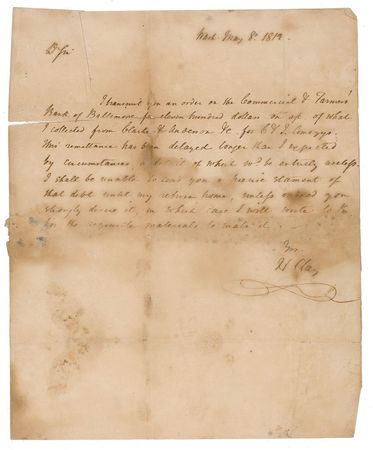 Wash. May 8h. 1812.
D Sir
I transmit you an order on the Commercial & Farmers
Bank of Baltimore for eleven hundred dollars on a/c of what
I collected from Clarke & Anderson &c. for
This remittance has been delayed longer than I expected
by circumstances a detail of which wd. be entirely useless.
I shall be unable to send you a precise statement of
that debt until my return home, unless indeed you
strongly desire it, in which case I will write to
for the requisite materials to make it.
Yrs.
H Clay